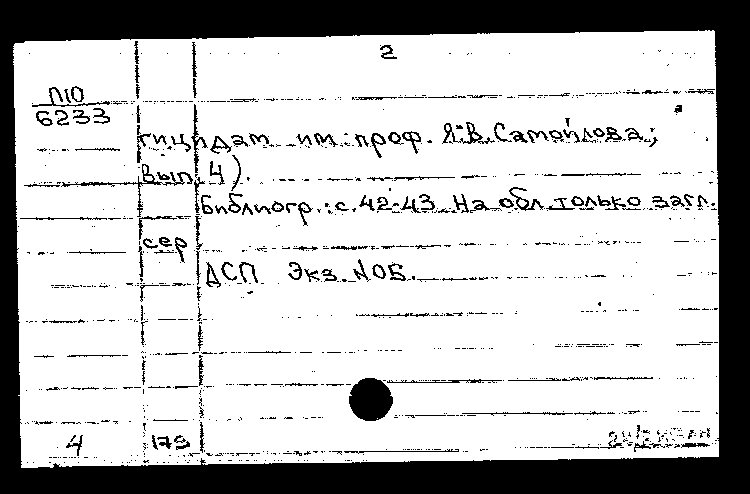 2
П10
6233
гицидам им. проф. Я.В. Самойлова;
Вып. 4).
Библиогр.: с. 42-43 На обл. только загл.
сер
ДСП Экз. №05.
4 179